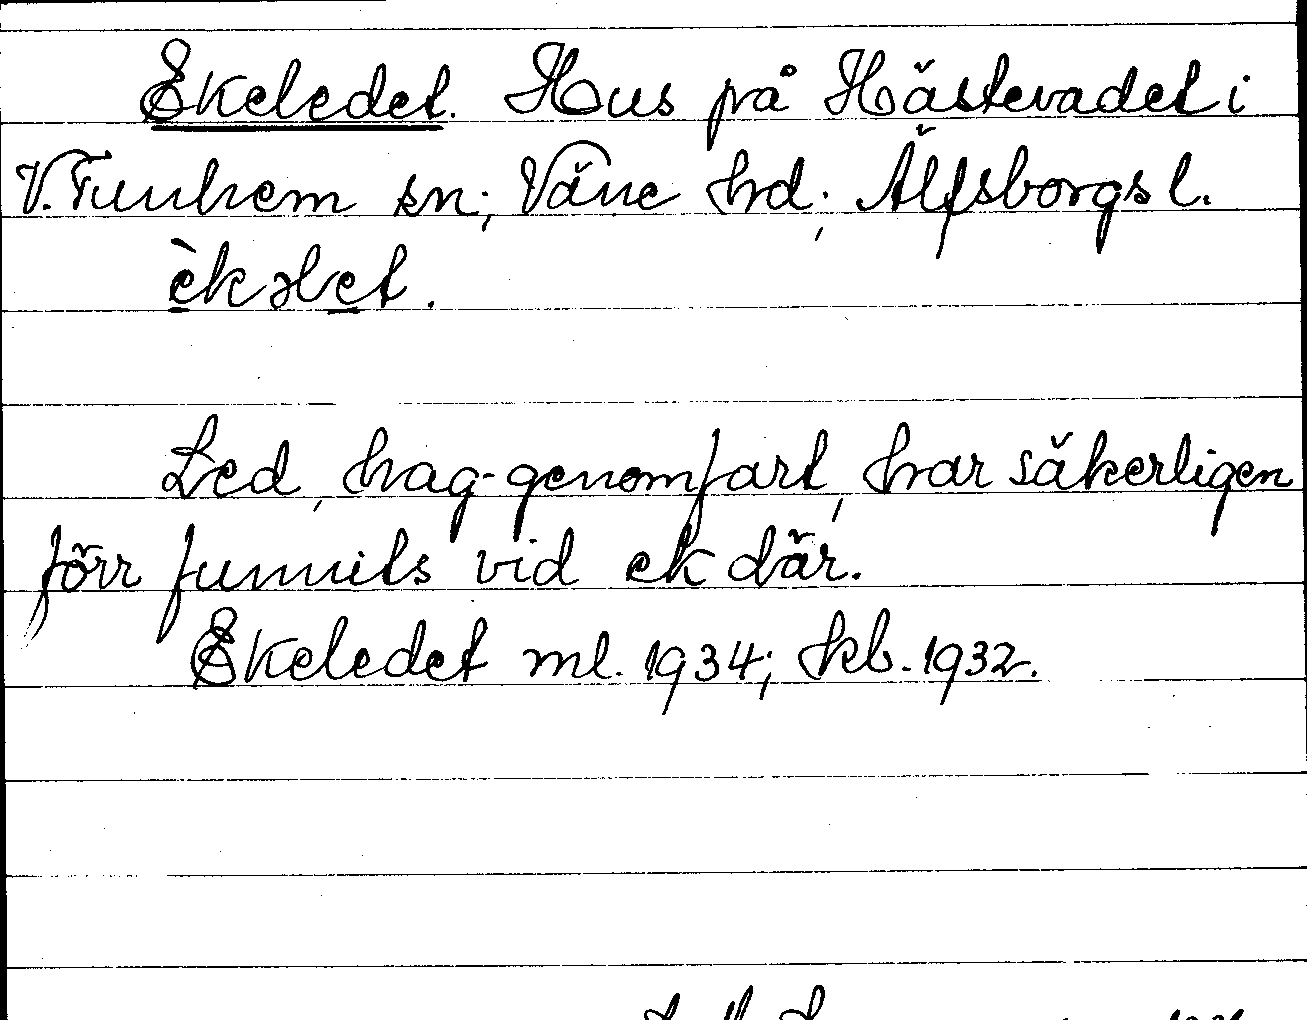 Ekeledet. Hus på Hästevadet i
V. Tunhem sn; Väne hd; Älfsborgs l.
èkəlet.
Led, hag-genomfart, har säkerligen
förr funnits vid ek där.
Ekeledet ml. 1934; kb. 1932.